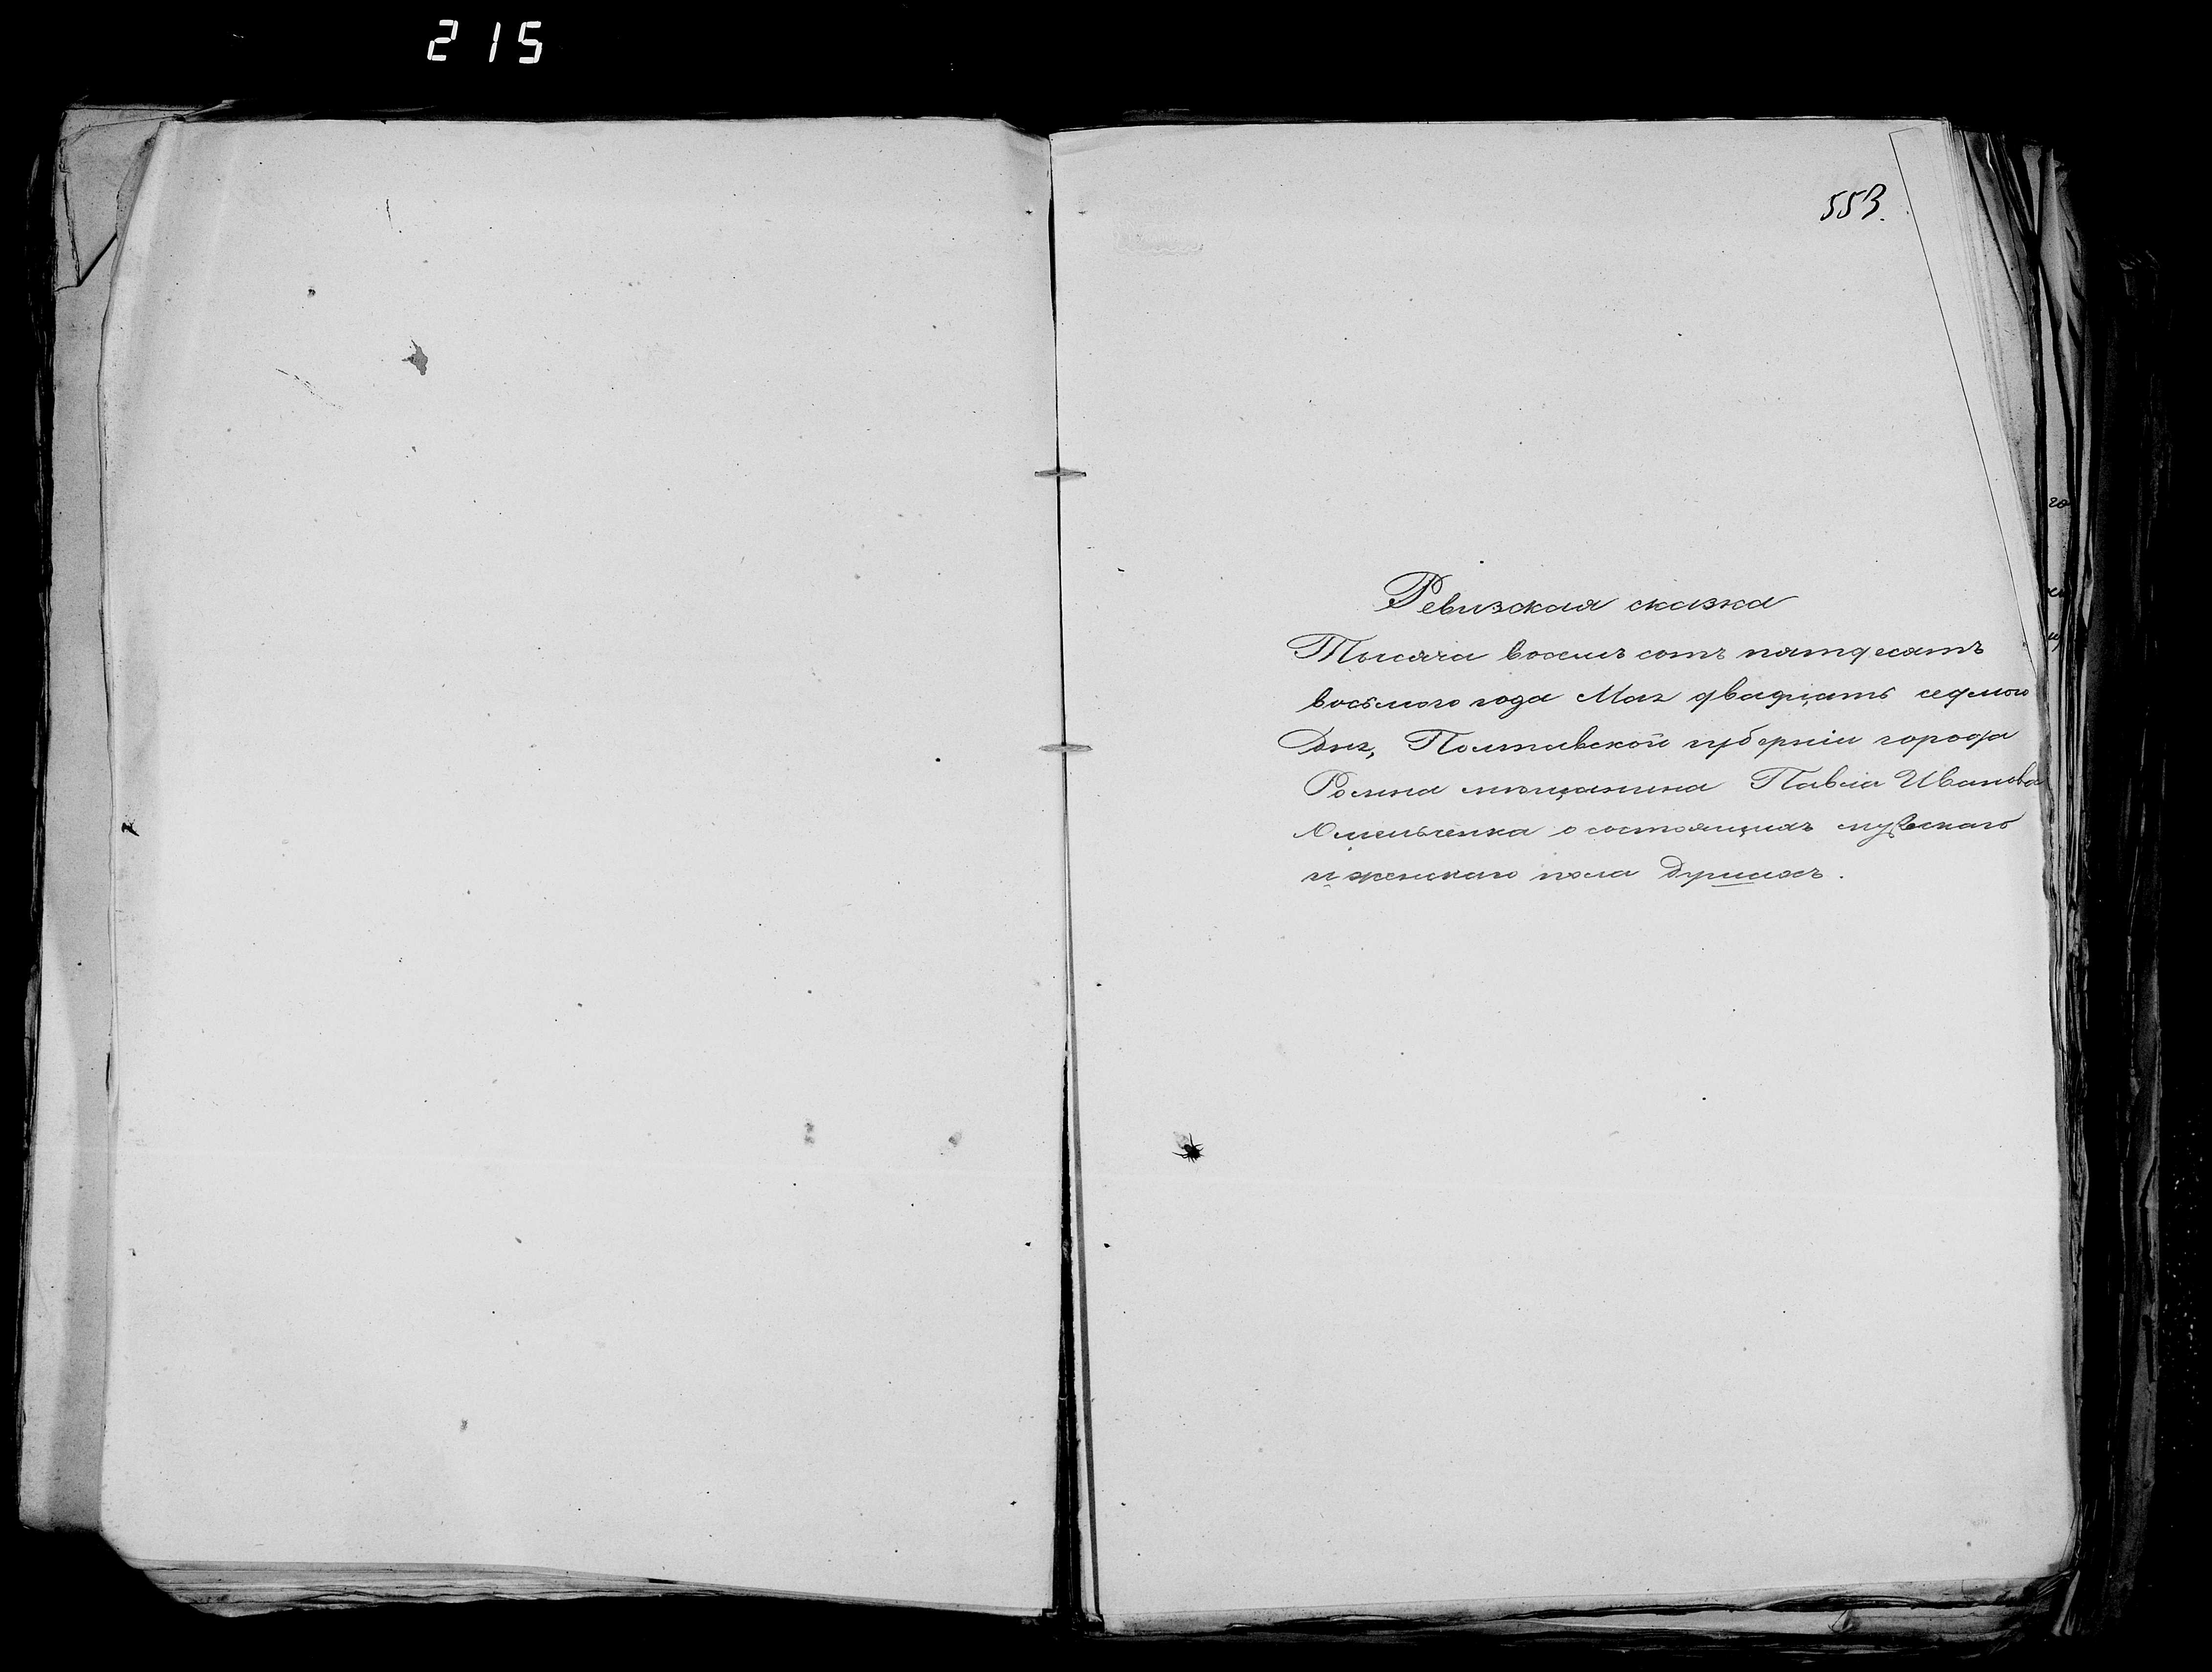 215
553.
Ревизская сказка
Тысяча восемь сотъ пятдесятъ
восьмого года Мая двадцать седмого
Дня, Полтавской губерніи города
Ромна мѣщанина Павла Иванова
Омельченка о состоящихъ мужескаго
и женскаго пола душахъ.
го